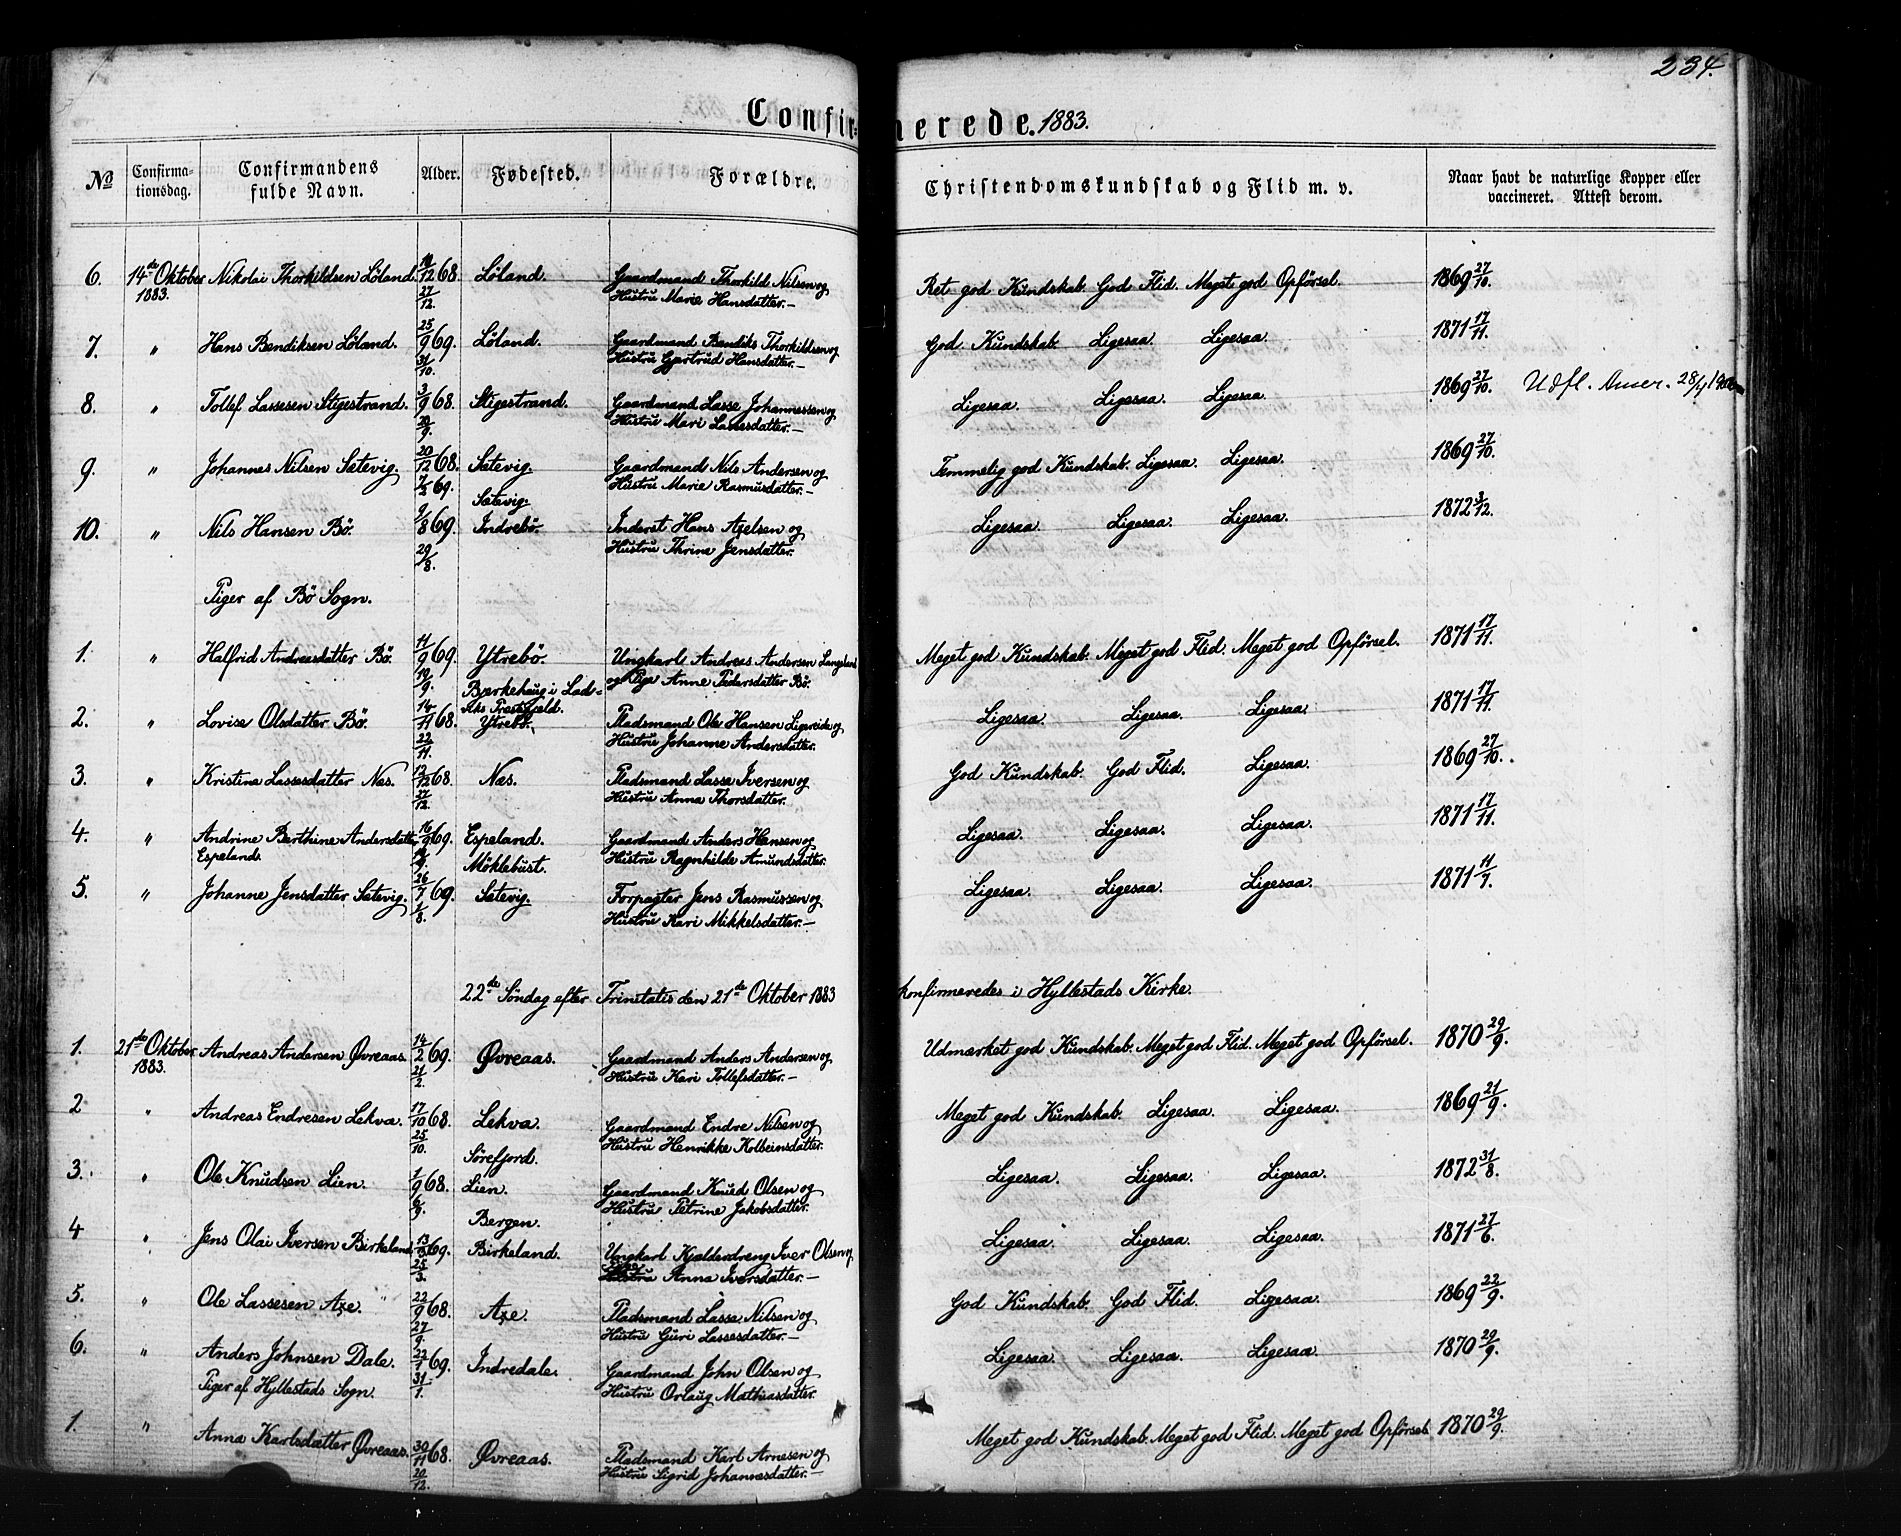 234.
Confirmerede. 1883.
No
Confirma-
tionsdag.
Confirmandens
fulde Navn.
Alder.
Fødested.
Forældre.
Christendomskundskab og Flid m. v.
Naar havt de naturlige Kopper eller
vaccineret. Attest derom.
6. 14de Oktober Nikolai Thorkildsen Löland. 12 68. Löland. Gaardmand Thorkild Nilsen og Ret god Kundskab. God Flid. Meget god Opförsel. 1869 27/10.
1883. 27/12. Hustru Marie Hansdatter.—
7. " Hans Bendiksen Löland. 25/9 69. Löland. Gaardmand Bendiks Thorkildsen og God Kundskab. Ligesaa. Ligesaa. 1871 17/11.
31/10. Hustru Gjertrud Hansdatter.—
8. " Tollef Lassesen Stigestrand. 3/9 68. Stigestrand. Gaardmand Lasse Johannessen og Ligesaa. Ligesaa. Ligesaa. 1869 27/10. Udfl.
20/9. Hustru Mari Lassesdatter.—
9. " Johannes Nilsen Sætevig. 20/12 68. Sætevig. Gaardmand Nils Andersen og Temmelig god Kundskab. Ligesaa. Ligesaa. 1869 27/10.
7/2 69. Hustru Marie Rasmusdatter.—
Sætevig.
10. " Nils Hansen Bö. 8 69. Indrebö. Inderst Hans Axelsen og Ligesaa. Ligesaa. Ligesaa. 1872 3/12.
29/8. Hustru Thrine Jensdatter.
Piger af Bö Sogn.
1. " Halfrid Andreasdatter Bö. 11/9 69. Ytrebö. Ungkarl Andreas Andersen Langeland Meget god Kundskab. Meget god Flid. Meget god Opförsel. 1871 17/11.
19/9. og Pige Anne Pedersdatter Bö.
Bærkehaug i Lad-
viks Præstegjeld.
2. " Lovise Olsdatter Bö. 14/11 68. Ytrebö. Pladsmand Ole Hansen Ligereide og Ligesaa. Ligesaa. Ligesaa. 1871 17/11.
22/11. Hustru Johanne Andersdatter.
3. " Kristina Lassesdatter Næs. 12 68. Næs. Pladsmand Lasse Iversen og God Kundskab. God Flid. Ligesaa. 1869 27/10.
27/12. Hustru Anna Thorsdatter.
4. " Andrine Berthine Andersdatter 69. Espeland. Gaardmand Anders Hansen og Ligesaa. Ligesaa. Ligesaa. 1871 17/11.
Espeland. Möklebust. Hustru Ragnhilde Amundsdatter.
5. " Johanne Jensdatter Sætevig. 26/7 69. Sætevig. Forpagter Jens Rasmussen og Ligesaa. Ligesaa. Ligesaa. 1871 11/7.
1/8. Hustru Kari Mikkelsdatter.—
22de Söndag efter Trinitatis den 21de Oktober 1883 konfirmeredes i Hyllestads Kirke.
1. 21de Oktober Andreas Andersen Øvreaas. 14/2 69. Øvreaas. Gaardmand Anders Andersen og Udmærket god Kundskab. Meget god Flid. Meget god Opförsel. 1870 29/9.
1883. 21/2. Hustru Kari Tollefsdatter.—
2 " Andreas Endresen Lekva. 17/10 68. Lekva. Gaardmand Endre Nilsen og Meget god Kundskab. Ligesaa. Ligesaa. 1869 21/9.
25/10. Hustru Henrikke Kolbeinsdatter.
Sörefjord.
3. " Ole Knudsen Lien. 1/9 68. Lien. Gaardmand Knud Olsen og Ligesaa. Ligesaa. Ligesaa. 1872 31/8.
6/9. Hustru Petrine Jakobsdatter.
Bergen.
4 " Jens Olai Iversen Birkeland 13/3 69. Birkeland. Ungkarl Kjælderdreng Iver Olsen og Ligesaa. Ligesaa. Ligesaa. 1871 27/6.
25/3. Hustru Anna Iversdatter.—
5. " Ole Lassesen Axe. 22/9 68. Axe. Pladsmand Lasse Nilsen og God Kundskab. God Flid. Ligesaa. 1869 22/9.
27/9. Hustru Guri Lassesdatter.—
6. " Anders Johnsen Dale. 22/1 69. Indredale. Gaardmand John Olsen og Ligesaa. Ligesaa. Ligesaa. 1870 29/9.
31/1. Hustru Orlaug Mathiasdatter.
Piger af Hyllestads Sogn.
1. " Anna Karlsdatter Øvreaas. 30/11 68. Øvreaas. Pladsmand Karl Arnesen og Meget god Kundskab. Meget god Flid. Meget god Opförsel. 1870 29/9.
20/12. Hustru Sigrid Johannesdatter.—